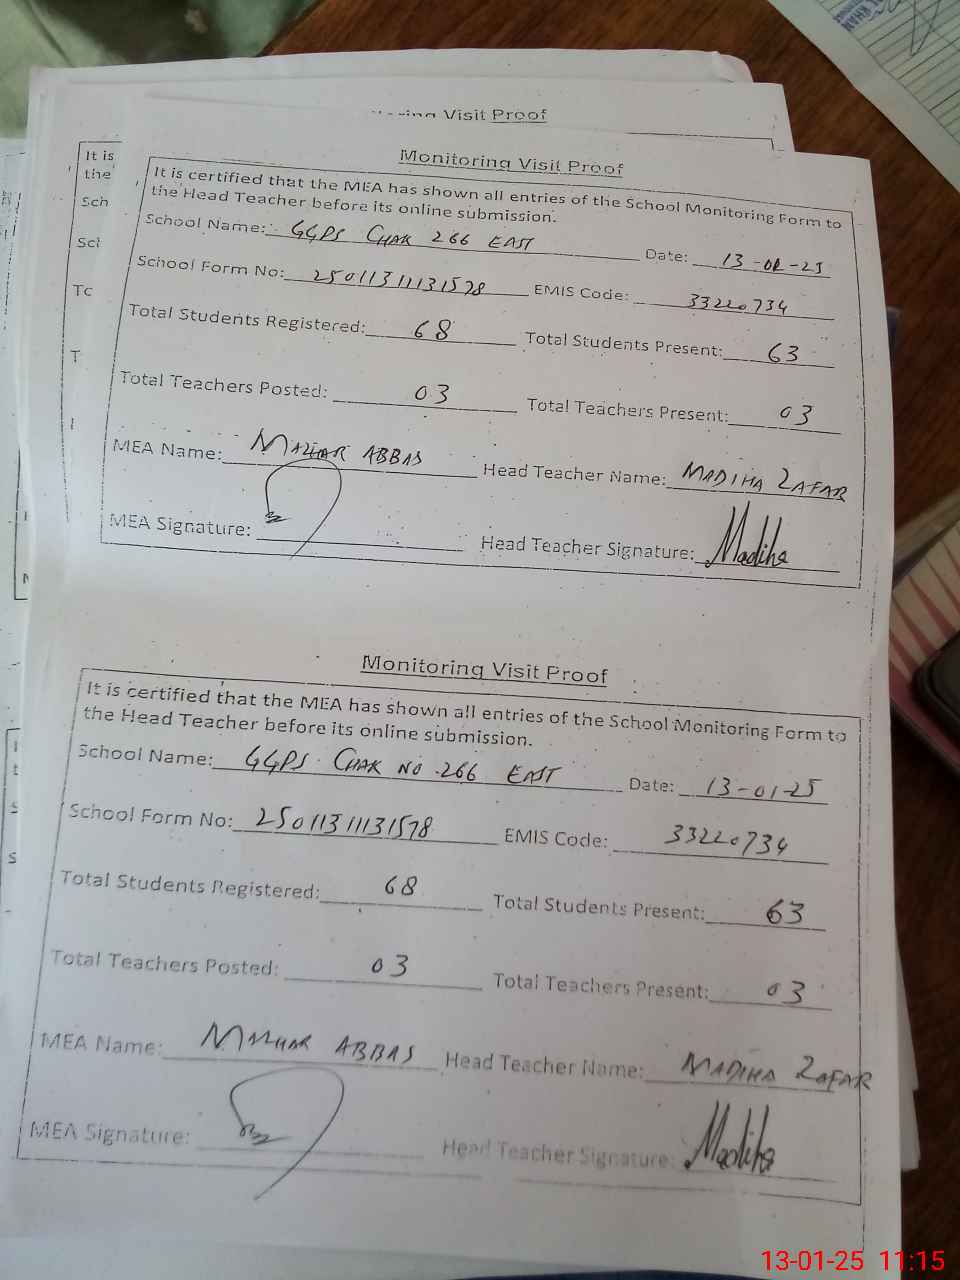 Visit Proof
It is
the
Sch
Scl
Tc
T
Monitoring Visit Proof
It is certified that the MEA has shown all entries of the School Monitoring Form to
the Head Teacher before its online submission.
School Name: GGPS CHAK 266 EAST Date: 13-01-25
School Form No: 25011311131578 EMIS Code: 33220734
Total Students Registered: 68 Total Students Present: 63
Total Teachers Posted: 03 Total Teachers Present: 03
MEA Name: MAZHAR ABBAS Head Teacher Name: MADIHA ZAFAR
MEA Signature: Head Teacher Signature: Madiha
Monitoring Visit Proof
It is certified that the MEA has shown all entries of the School Monitoring Form to
the Head Teacher before its online submission.
School Name: GGPS. CHAK NO.266 EAST Date: 13-01-25
School Form No: 25011311131578 EMIS Code: 33220734
Total Students Registered: 68 Total Students Present: 63
Total Teachers Posted: 03 Total Teachers Present: 03
MEA Name: MAZHAR ABBAS Head Teacher Name: MADIHA ZAFAR
MEA Signature: Head Teacher Signature: Madiha
13-01-25 11:15